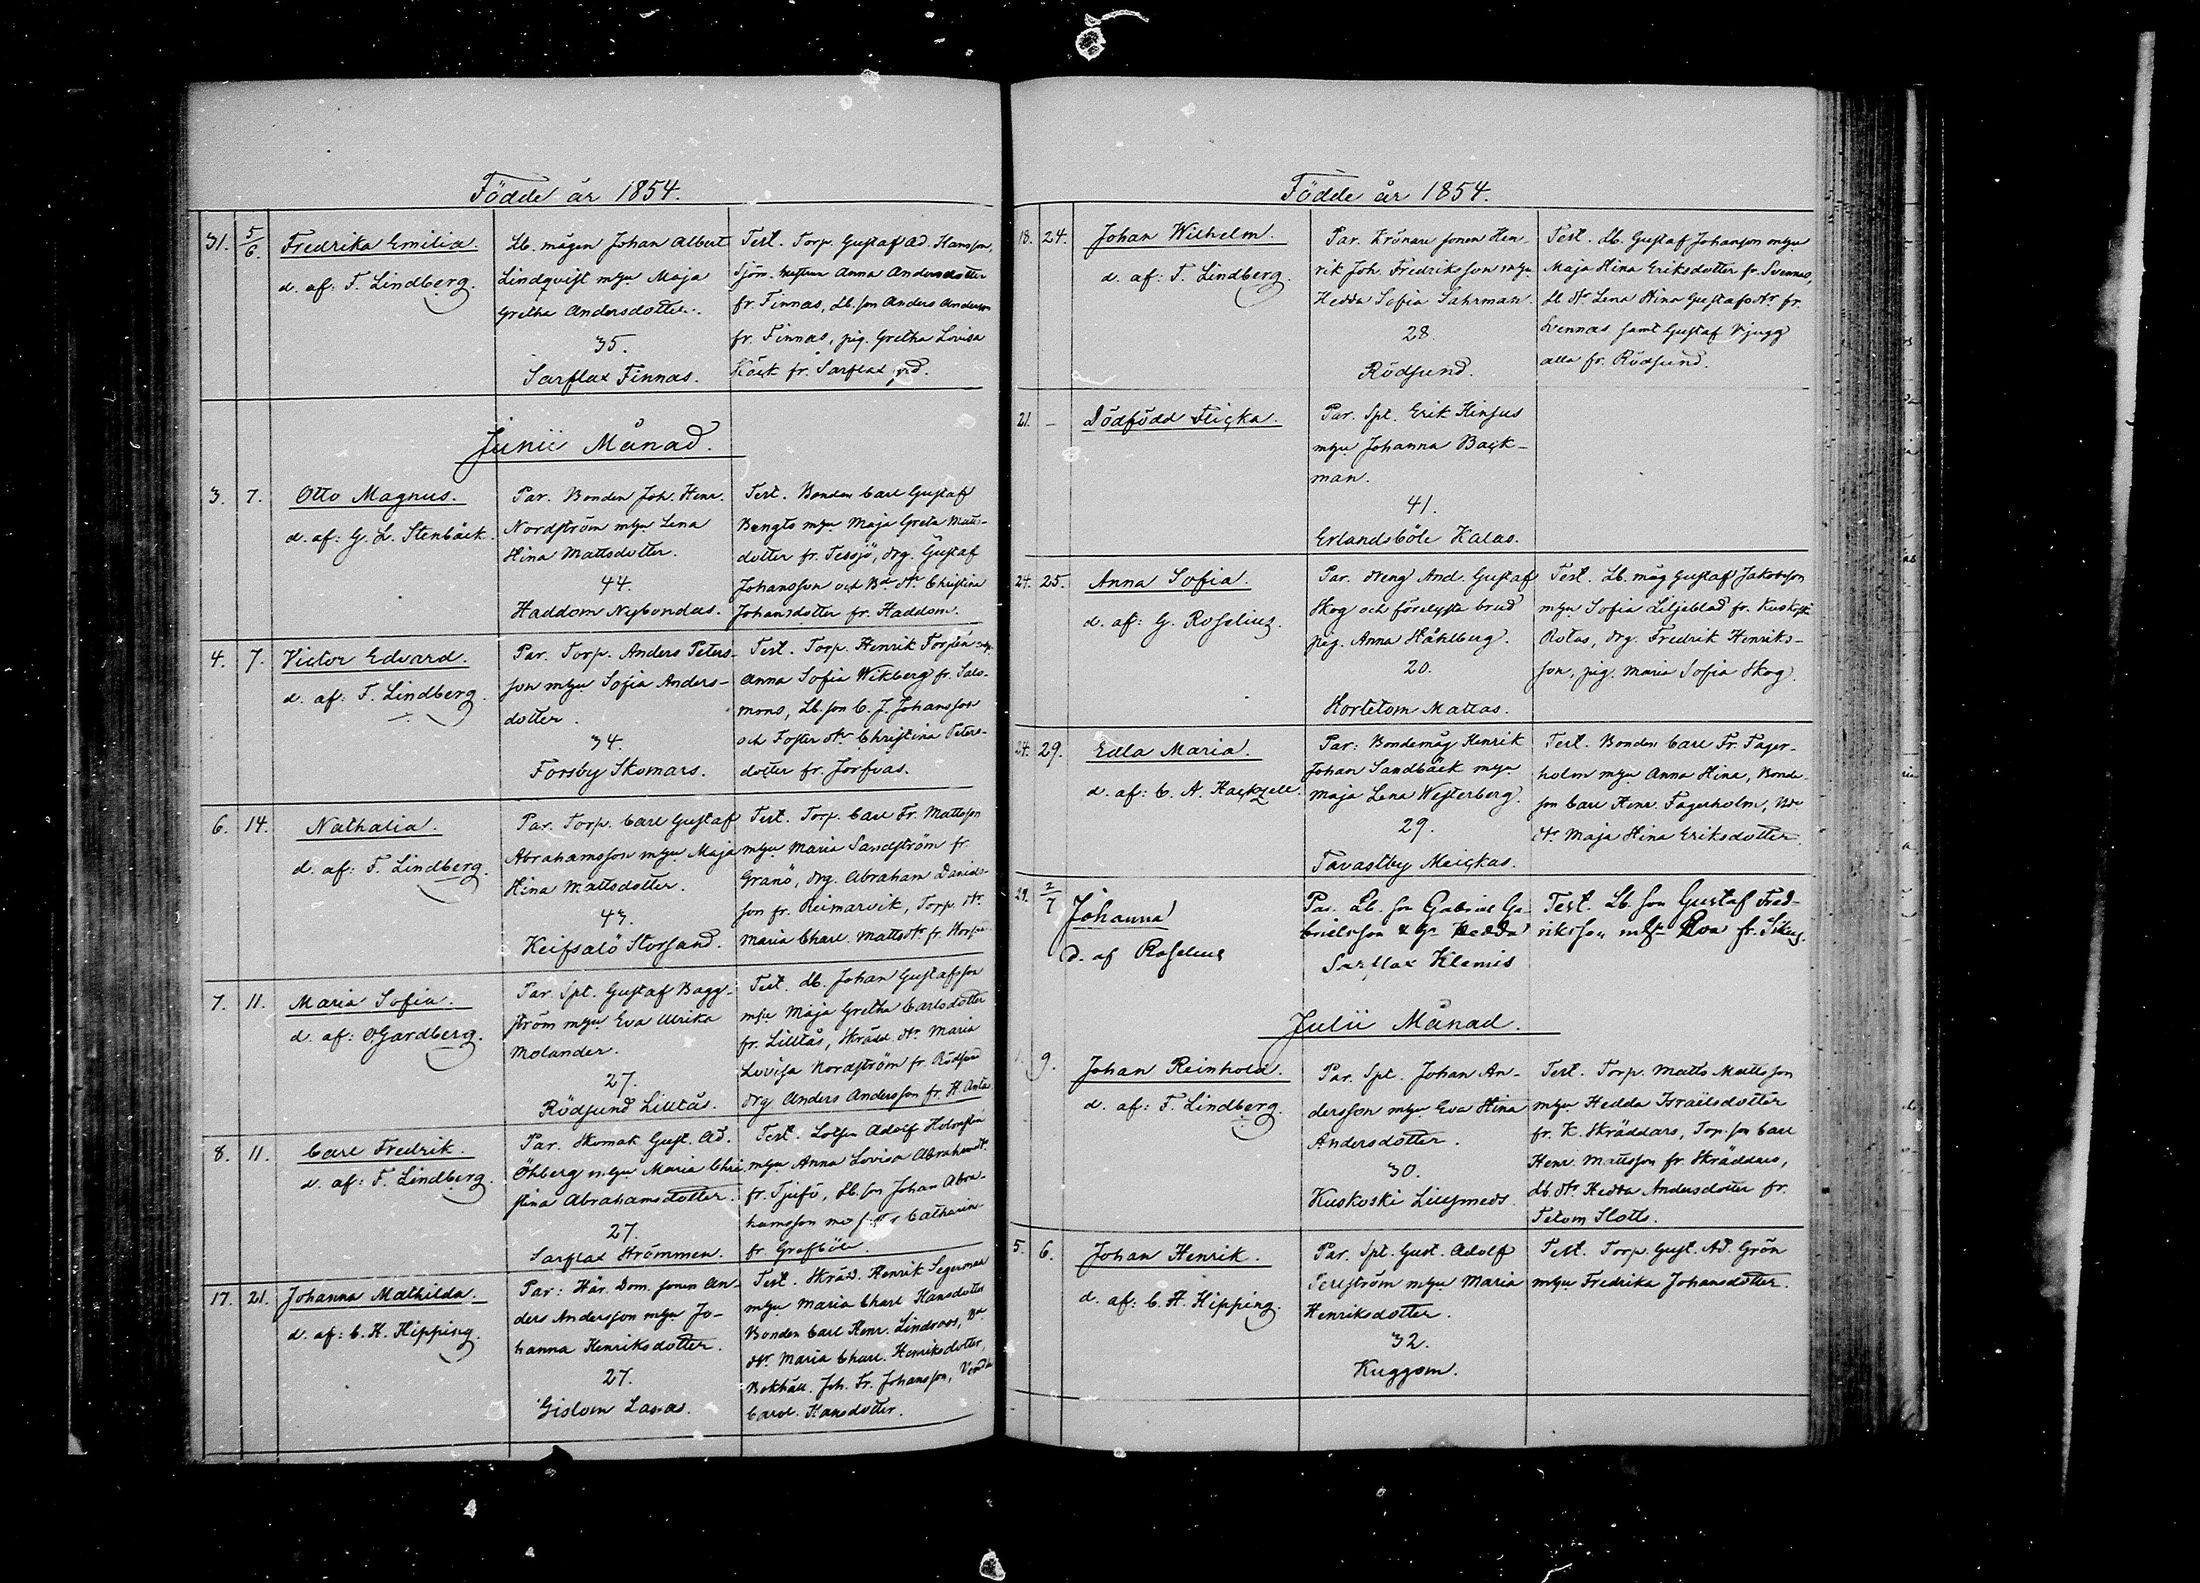 Födde år 1854.
31. 5/6. Fredrika Emilia.
d. af: F. Lindberg.
Lb. mågen Johan Albert
Lindqvist m hu Maja
Gretha Andersdotter.
35.
Sarflax Finnas.
Test. Torp. Gustaf Ad. Hansson,
Sjöm. hustrun Anna Andersdotter
fr. Finnas, Lb. son Anders Andersson
fr. Finnas, pig. Gretha Lovisa
fr. Sarflax
Junii Månad.
3. 7. Otto Magnus.
d. af: G. L. Stenbäck.
Par. Bonden Joh. Henr.
Nordström m hu Lena
Stina Mattsdotter.
44.
Haddom Nybondas.
Test. Bonden Carl Gustaf
Bengts m hu Maja Greta Matts-
dotter fr. Tessjö, drg. Gustaf
Johansson och Bd dr Christina
Johansdotter fr. Haddom.
4. 7. Victor Edvard.
d. af: F. Lindberg.
Par. Torp. Anders Peters-
son m hu Sofia Anders-
dotter.
34.
Forsby Skomars.
Test. Torp. Henrik Forstén
Anna Sofia Wikberg fr. Salo-
mons, Lb. son C. J. Johansson
och Foster dr Christina Peters-
dotter fr. Jorfvas.
6. 14. Nathalia.
d. af: F. Lindberg.
Par. Torp. Carl Gustaf
Abrahamsson m hu Maja
Stina Mattsdotter.
43.
Keifsalö Storsand.
Test. Torp. Carl Fr. Mattsson
m hu Maria Sandström fr.
Granö, drg. Abraham Davids-
son fr. Reimarvik, Torp. dr
Maria Charl. Matts dr fr.
7. 11. Maria Sofia.
d. af: O Gardberg.
Par. Spt. Gustaf Bagg-
ström m hu Eva Ulrika
Molander.
27.
Rödsund Lilltås.
Test. Lb. Johan Gustafsson
m hu Maja Gretha Carlsdotter
fr. Lilltås, Skrädd. dr Maria
Lovisa Nordström fr. Rödsund
drg Anders Andersson fr. H. Anta
8. 11. Carl Fredrik.
d. af: F. Lindberg.
Par. Skomak. Gust. Ad.
Öhberg m hu Maria Chri-
stina Abrahamsdotter.
27.
Sarflax Strömmen.
Test. Lotsen Adolf Holmstén
m hu Anna Lovisa Abrahams dr
fr. Tjufö, Lb. son Johan Abra-
hamsson Catharina
fr. Grefböle.
17. 21. Johanna Mathilda.
d. af: C. H. Hipping.
Par: Här. Dom. sonen An-
ders Andersson m hu Jo-
hanna Henriksdotter.
27.
Gislom Lassas.
Test. Skräd. Henrik Segerman
m hu Maria Charl. Hansdotter
Bonden Carl Henr. Lindroos, Bd
dr Maria Charl. Henriksdotter,
Bokhåll. Joh. Fr. Johansson,
Carol. Hansdotter.
Födde år 1854.
18. 24. Johan Wilhelm.
d. af: F. Lindberg.
Par. Krönare sonen Hen-
rik Joh. Fredriksson m hu
Hedda Sofia Sahrman.
28.
Rödsund.
Test. Lb. Gustaf Johanson m hu
Maja Stina Eriksdotter fr. Svennas,
Lb dr Lena Stina Gustafs dr fr.
Svennas samt Gustaf Bjugg
alla fr. Rödsund.
21. – Dödfödd Flicka.
Par. Spt. Erik Hinsus
m hu Johanna Back-
man.
41.
Erlandsböle Kalas.
24. 25. Anna Sofia.
d. af: G. Roselius.
Par. dreng And. Gustaf
Skog och förelysta brud
pig. Anna Ståhlberg.
20.
Hortetom Mattas.
Test. Lb. måg Gustaf Jakobsson
m hu Sofia Liljeblad fr. Kuskoski
Rotas, drg. Fredrik Henriks-
son, pig. Maria Sofia Skog.
24. 29. Edla Maria.
d. af: C. A. Hackzell.
Par: Bondemåg Henrik
Johan Sandbäck m hu
Maja Lena Westerberg.
29.
Tavastby Meickas.
Test. Bonden Carl Fr. Fager-
holm m hu Anna Stina, Bonde-
son Carl Henr. Fagerholm, Bde
dr Maja Stina Eriksdotter.
29. 2/7 Johanna
D. af Roselius
Par. Lb. son Gabriel Ga-
brielsson & hu Hedda
Sarflax Klemis
Test. Lb son Gustaf Fred-
riksson m h Eva fr.
Julii Månad.
1. 9. Johan Reinhold.
d. af: F. Lindberg.
Par. Spt. Johan An-
dersson m hu Eva Stina
Andersdotter.
30.
Kuskoski Lillsmeds.
Test. Torp. Matts Mattsson
m hu Hedda Israelsdotter
fr. K. Skräddars, Torp. son Carl
Henr. Mattsson fr. Skräddars,
Lb. dr Hedda Andersdotter fr.
Tetom Slotts.
5. 6. Johan Henrik.
d. af: C. H. Hipping.
Par. Spt. Gust. Adolf
Perlström m hu Maria
Henriksdotter.
32.
Kuggom.
Test. Torp. Gust. Ad. Grön
m hu Fredrika Johansdotter.